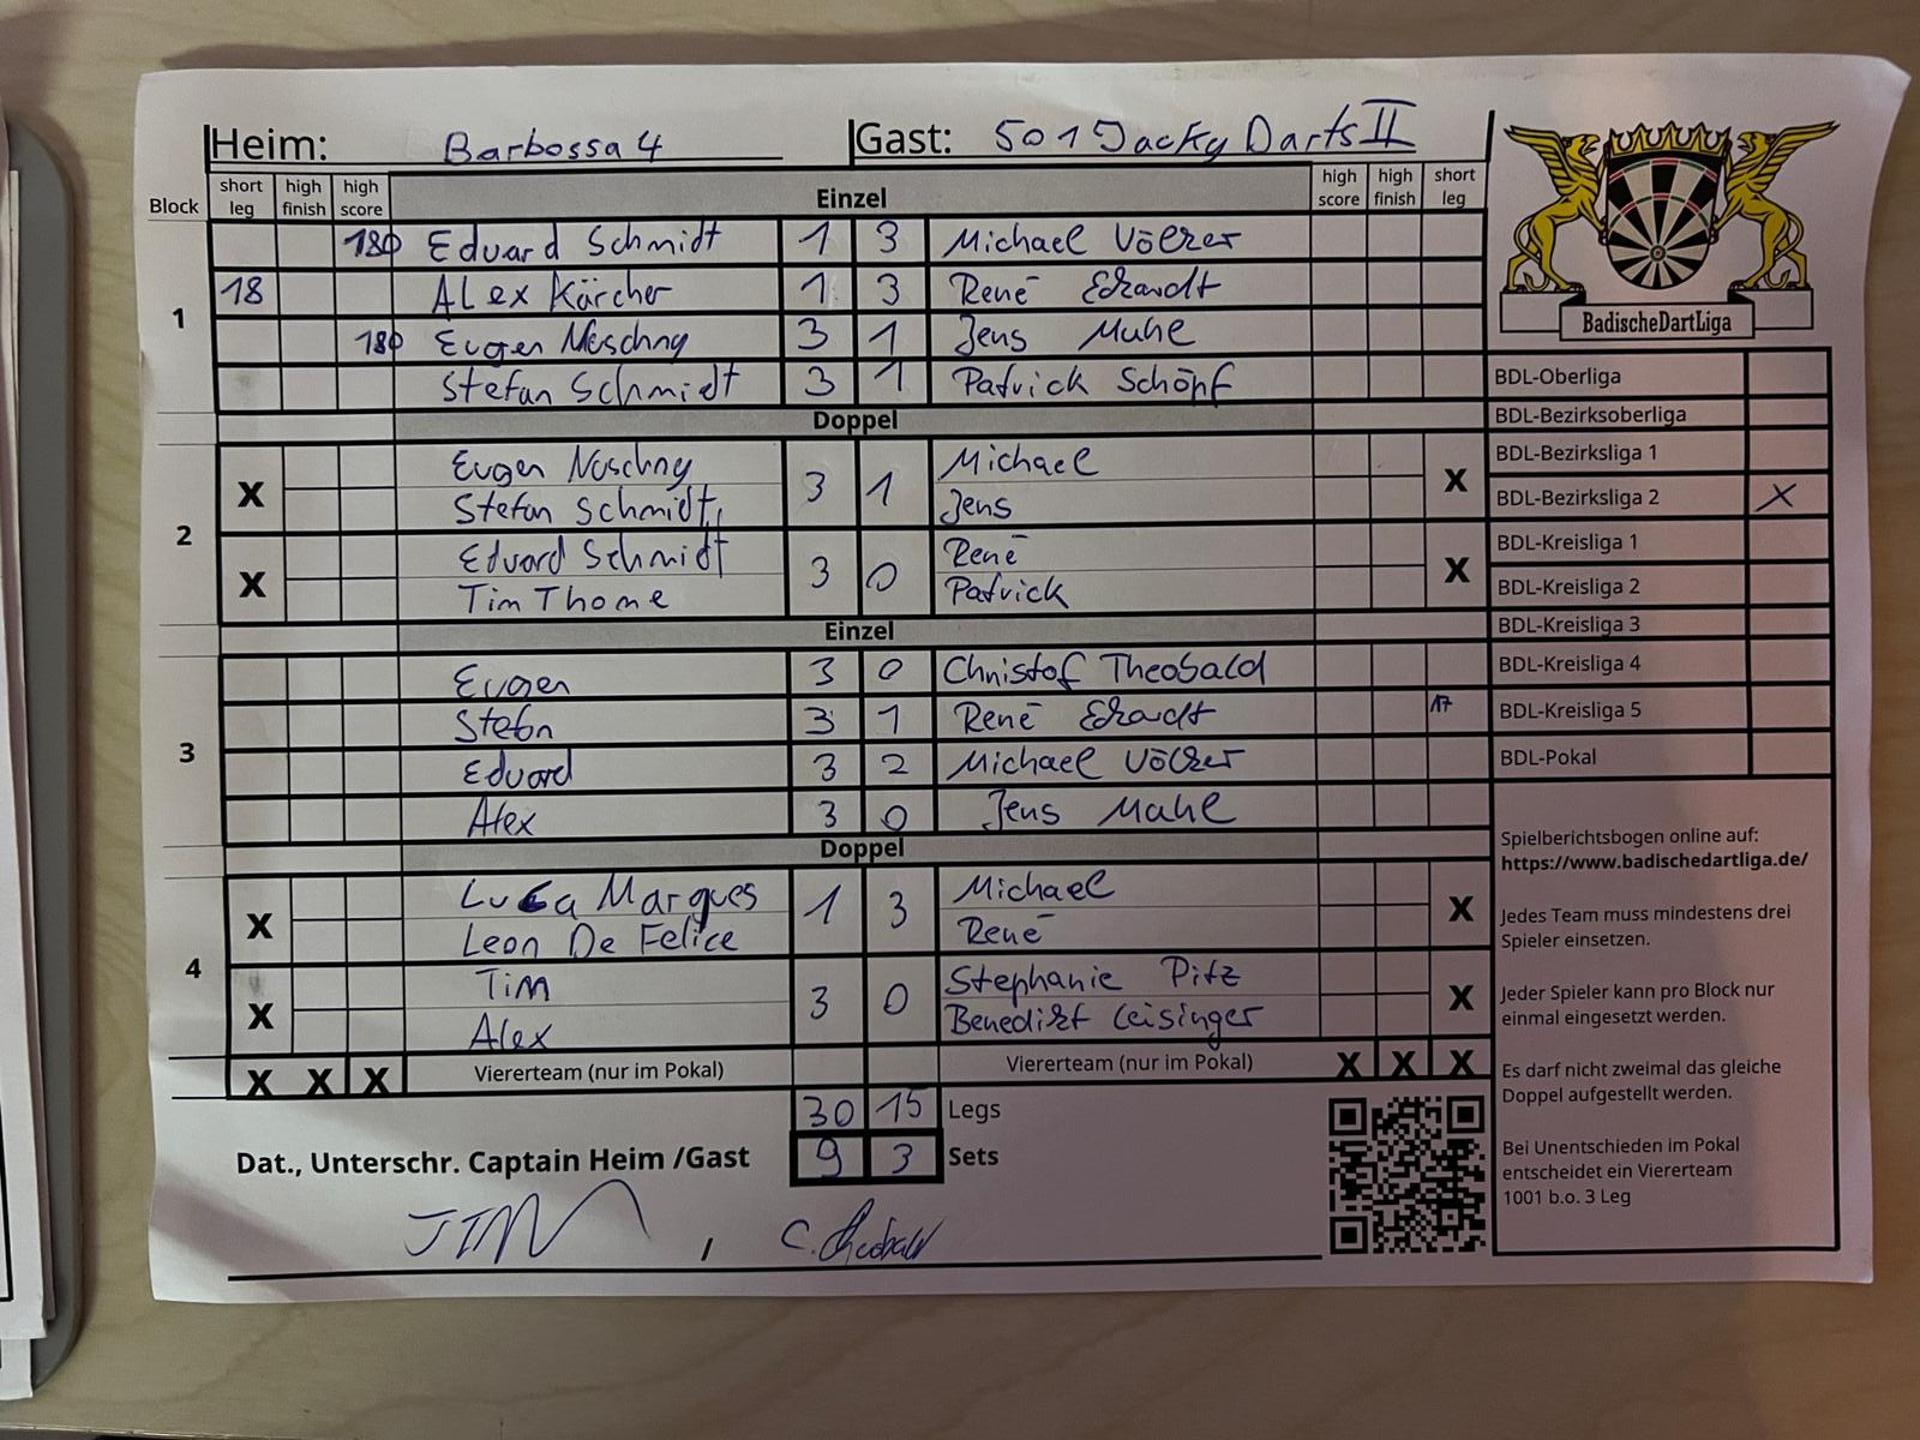 Heim: Barbossa 4 Gast: 501 Jacky Darts II
Block short leg high finish high score Einzel high score high finish short leg
1
180 Eduard Schmidt 1 3 Michael Völker
18 Alex Kärcher 1 3 René Ehrardt
180 Eugen Muschny 3 1 Jens Muhl
Stefan Schmidt 3 1 Patrick Schöpf
Doppel
2
X Eugen Muschny 3 1 Michael X
Stefan Schmidt Jens
X Eduard Schmidt 3 0 René X
Tim Thome Patrick
Einzel
3
Eugen 3 0 Christof Theobald
Stefn 3 1 René Ehrardt 17
Eduard 3 2 Michael Völker
Alex 3 0 Jens Mahl
Doppel
4
X Luca Marques 1 3 Michael X
Leon De Felice René
X Tim 3 0 Stephanie Pitz X
Alex Benedikt Leisinger
X X X Viererteam (nur im Pokal) Viererteam (nur im Pokal) X X X
30 15 Legs
9 3 Sets
Dat., Unterschr. Captain Heim /Gast
TIM / C. Theobald
BadischeDartLiga
BDL-Oberliga
BDL-Bezirksoberliga
BDL-Bezirksliga 1
BDL-Bezirksliga 2 X
BDL-Kreisliga 1
BDL-Kreisliga 2
BDL-Kreisliga 3
BDL-Kreisliga 4
BDL-Kreisliga 5
BDL-Pokal
Spielberichtsbogen online auf:
https://www.badischedartliga.de/
Jedes Team muss mindestens drei
Spieler einsetzen.
Jeder Spieler kann pro Block nur
einmal eingesetzt werden.
Es darf nicht zweimal das gleiche
Doppel aufgestellt werden.
Bei Unentschieden im Pokal
entscheidet ein Viererteam
1001 b.o. 3 Leg